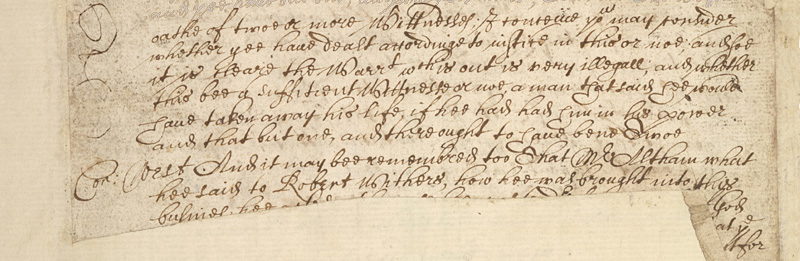 oathe of twoe or more Wittnesses; I conceive you may consider
whether yee have dealt accordinge to justice in this or noe; and soe
it is cleare the Warrt wthis out is very illegall; and whether
this bee a sufficient Wittnesse or noe, a man that said hee would
have taken away his life, if hee had had him in his power
and that but one, and there ought to have bene Twoe
Con: Corst And it may bee remembred too That Mr Altham what
hee said to Robert Withers, how hee was brought into this
busines hee
God
at ye
for